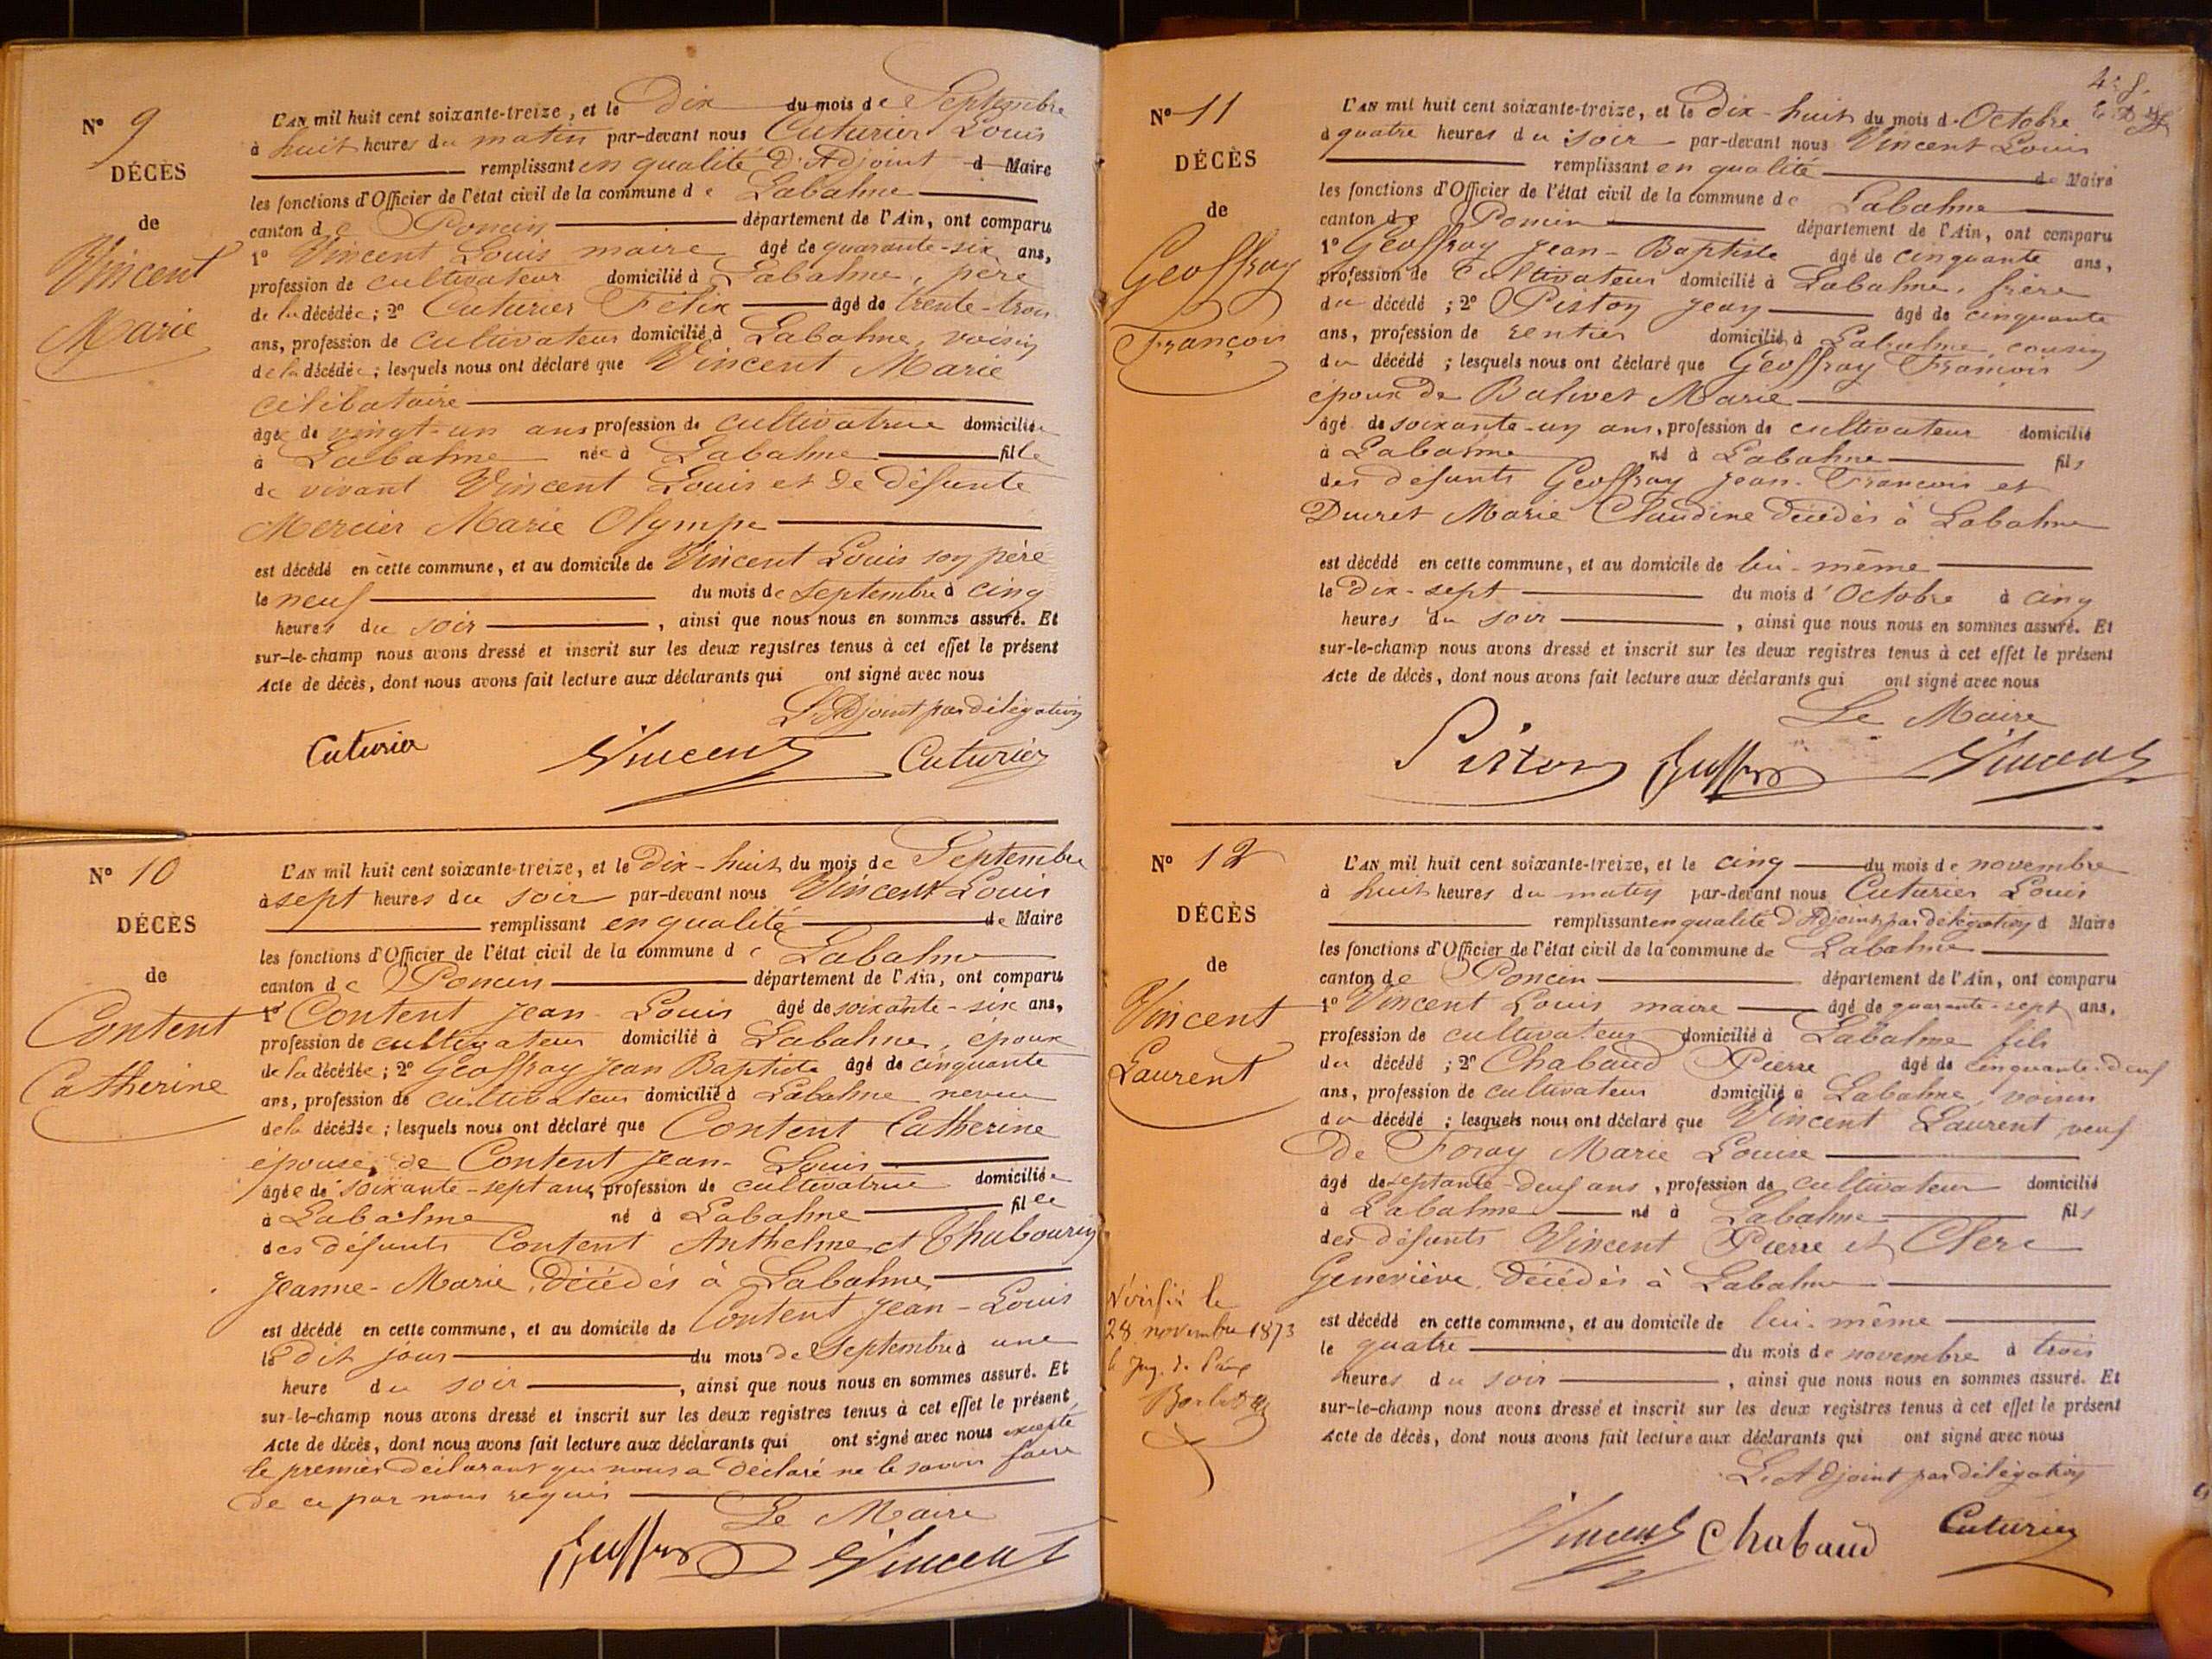 Nº 9
DÉCÈS
de
Vincent
Marie
L'AN mil huit cent soixante-treize, et le Dix du mois de Septembre
à huit heures du matin par-devant nous Cuturier Louis
remplissant en qualité d'Adjoint d Maire
les fonctions d'Officier de l'état civil de la commune de Labalme
canton de Poncin département de l'Ain, ont comparu
1º Vincent Louis maire âgé de quarante-six ans,
profession de cultivateur domicilié à Labalme, père
de la décédée; 2º Cuturier Félix âgé de trente-trois
ans, profession de cultivateur domicilié à Labalme, voisin
de la décédée; lesquels nous ont déclaré que Vincent Marie
célibataire
âgée de vingt-un ans profession de cultivatrice domiciliée
à Labalme née à Labalme fille
de vivant Vincent Louis et de défunte
Mercier Marie Olympe
est décédé en cette commune, et au domicile de Vincent Louis son père
le neuf du mois de septembre à cinq
heures du soir, ainsi que nous nous en sommes assuré. Et
sur-le-champ nous avons dressé et inscrit sur les deux registres tenus à cet effet le présent
Acte de décès, dont nous avons fait lecture aux déclarants qui ont signé avec nous
L'Adjoint par délégation
Cuturier Vincent Cuturier
Nº 10
DÉCÈS
de
Content
Catherine
L'AN mil huit cent soixante-treize, et le Dix-huit du mois de Septembre
à sept heures du soir par-devant nous Vincent Louis
remplissant en qualité de Maire
les fonctions d'Officier de l'état civil de la commune de Labalme
canton de Poncin département de l'Ain, ont comparu
1º Content Jean Louis âgé de soixante-six ans,
profession de cultivateur domicilié à Labalme, époux
de la décédée; 2º Geoffray Jean Baptiste âgé de cinquante
ans, profession de cultivateur domicilié à Labalme neveu
de la décédée; lesquels nous ont déclaré que Content Catherine
épouse de Content Jean-Louis
âgée de soixante-sept ans, profession de cultivatrice domiciliée
à Labalme né à Labalme fille
des défunts Content Anthelme et Chabourin
Jeanne-Marie, Décédés à Labalme
est décédé en cette commune, et au domicile de Content Jean-Louis
le dit jour du mois de Septembre à une
heure du soir, ainsi que nous nous en sommes assuré. Et
sur-le-champ nous avons dressé et inscrit sur les deux registres tenus à cet effet le présent
Acte de décès, dont nous avons fait lecture aux déclarants qui ont signé avec nous excepté
le premier déclarant qui nous a déclaré ne le savoir faire
de ce par nous requis
Le Maire
Geoffray Vincent
Nº 11
DÉCÈS
de
Geoffray
François
L'AN mil huit cent soixante-treize, et le dix-huit du mois d'Octobre
à quatre heures du soir par-devant nous Vincent Louis
remplissant en qualité de Maire
les fonctions d'Officier de l'état civil de la commune de Labalme
canton de Poncin département de l'Ain, ont comparu
1º Geoffray Jean-Baptiste âgé de cinquante ans,
profession de Cultivateur domicilié à Labalme, frère
du décédé; 2º Piston Jean âgé de cinquante
ans, profession de rentier domicilié à Labalme, cousin
du décédé; lesquels nous ont déclaré que Geoffray François
époux de Balivet Marie
âgé de soixante-un ans, profession de cultivateur domicilié
à Labalme né à Labalme fils
des défunts Geoffray Jean-François et
Ducret Marie Claudine décédés à Labalme
est décédé en cette commune, et au domicile de lui-même
le Dix-sept du mois d'Octobre à cinq
heures du soir, ainsi que nous nous en sommes assuré. Et
sur-le-champ nous avons dressé et inscrit sur les deux registres tenus à cet effet le présent
Acte de décès, dont nous avons fait lecture aux déclarants qui ont signé avec nous
Le Maire
Piston Geoffray Vincent
Nº 12
DÉCÈS
de
Vincent
Laurent
L'AN mil huit cent soixante-treize, et le cinq du mois de novembre
à huit heures du matin par-devant nous Cuturier Louis
remplissant en qualité d'Adjoint par délégation d Maire
les fonctions d'Officier de l'état civil de la commune de Labalme
canton de Poncin département de l'Ain, ont comparu
1º Vincent Louis maire âgé de quarante-sept ans,
profession de cultivateur domicilié à Labalme fils
du décédé; 2º Chabaud Pierre âgé de cinquante-deux
ans, profession de cultivateur domicilié à Labalme, voisin
du décédé; lesquels nous ont déclaré que Vincent Laurent, veuf
De Foray Marie Louise
âgé de septante-deux ans, profession de cultivateur domicilié
à Labalme né à Labalme fils
des défunts Vincent Pierre et Clerc
Geneviève, Décédés à Labalme
est décédé en cette commune, et au domicile de lui-même
le quatre du mois de novembre à trois
heures du soir, ainsi que nous nous en sommes assuré. Et
sur-le-champ nous avons dressé et inscrit sur les deux registres tenus à cet effet le présent
Acte de décès, dont nous avons fait lecture aux déclarants qui ont signé avec nous
L'Adjoint par délégation
Vincent Chabaud Cuturier
Vérifié le
28 novembre 1873
le Jug. de Paix